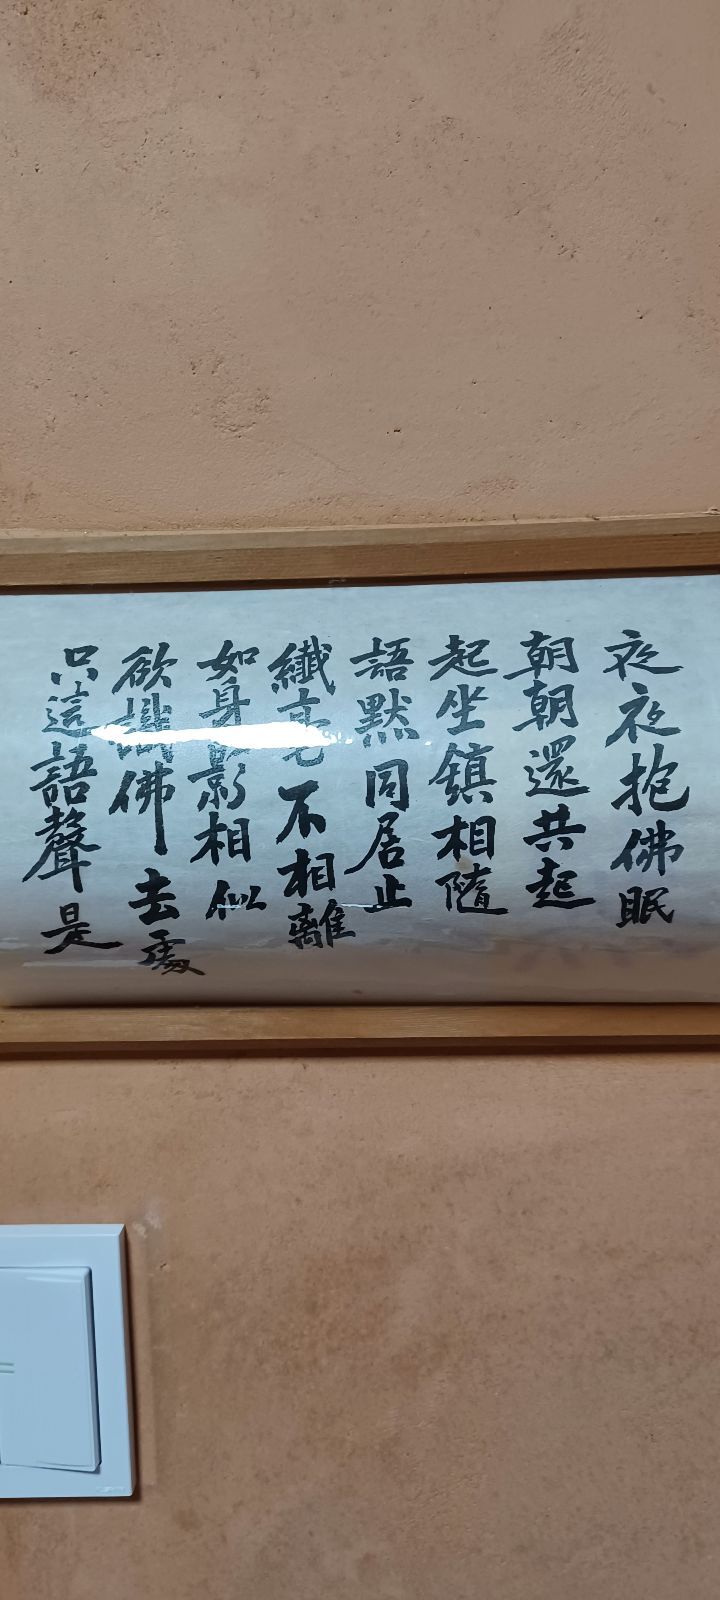 夜夜抱佛眠
朝朝還共起
起坐鎮相隨
語黙同居止
纖毫不相離
如身影相似
欲識佛去處
只這語聲是